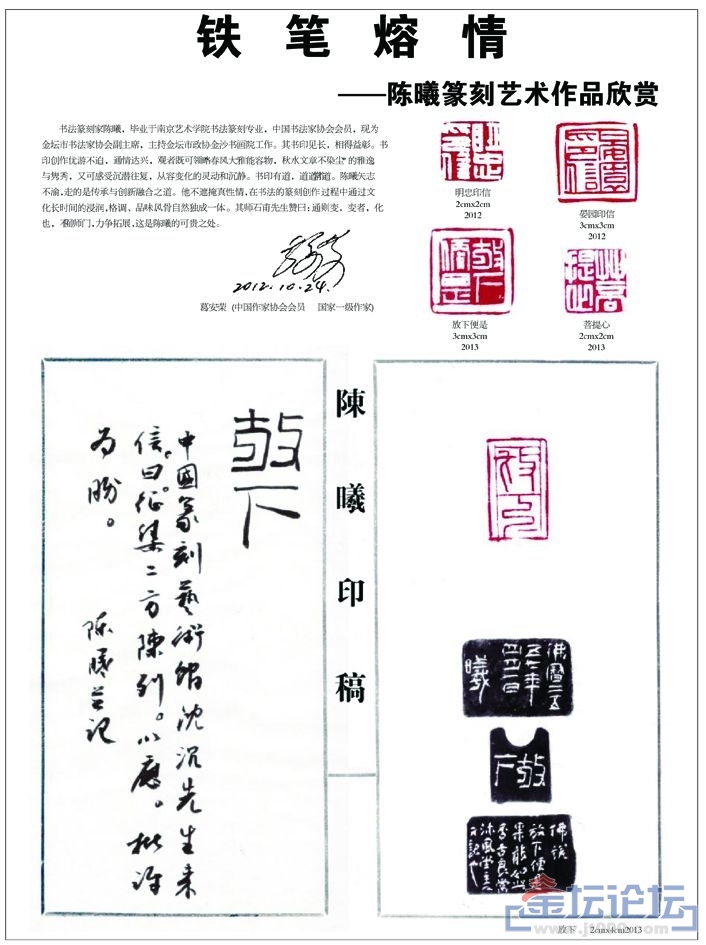 铁笔熔情
——陈曦篆刻艺术作品欣赏
书法篆刻家陈曦，毕业于南京艺术学院书法篆刻专业，中国书法家协会会员，现为
金坛市书法家协会副主席，主持金坛市政协金沙书画院工作。其书印见长，相得益彰。书
印创作优游不迫，通情达兴，观者既可领略“春风大雅能容物，秋水文章不染尘”的雅逸
与隽秀，又可感受沉潜往复，从容变化的灵动和沉静。书印有道，道道常道。陈曦矢志
不渝，走的是传承与创新融合之道。他不遮掩真性情，在书法的篆刻创作过程中通过文
化长时间的浸润，格调、品味风骨自然独成一体。其师石甫先生赞曰：通则变，变者，化
也，不囿师门，力争拓展，这是陈曦的可贵之处。
2012.10.24.
葛安荣 (中国作家协会会员 国家一级作家)
明忠印信
2cmx2cm
2012
晏园印信
3cmx3cm
2012
放下便是
3cmx3cm
2013
菩提心
2cmx2cm
2013
陳曦印稿
放下
中國篆刻藝術館沈沉先生来
信曰。征集二方陳列。以應。批評
为盼。
陈曦并记
放下
佛曆二五
五七年
曦
放下
佛说
放下便是
放下 2cmx4cm2013
金坛论坛